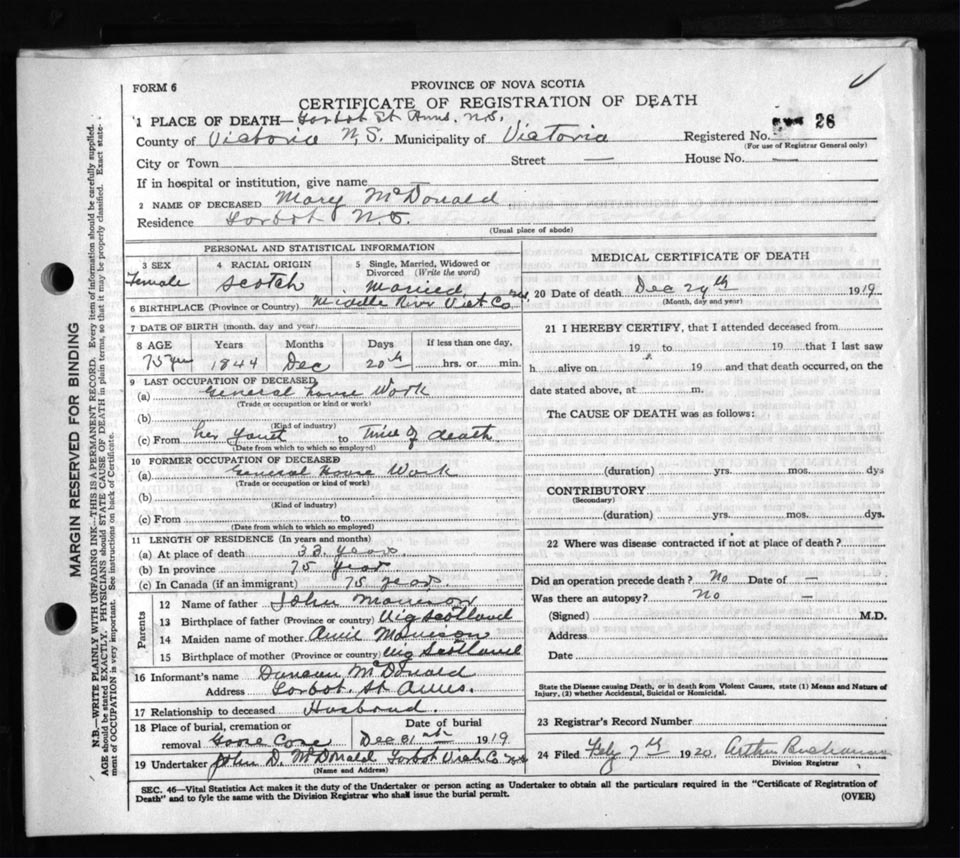 FORM 6
PROVINCE OF NOVA SCOTIA
CERTIFICATE OF REGISTRATION OF DEATH
1 PLACE OF DEATH— Torbot St Anns. N.S.
County of Victoria N,S. Municipality of Victoria Registered No. 26
(For use of Registrar General only)
City or Town Street — House No. —
If in hospital or institution, give name
2 NAME OF DECEASED Mary McDonald
Residence Torbot N.S.
(Usual place of abode)
PERSONAL AND STATISTICAL INFORMATION
3 SEX
Female
4 RACIAL ORIGIN
Scotch
5 Single, Married, Widowed or Divorced (Write the word)
Maried
6 BIRTHPLACE (Province or Country) Middle River Vict Co
7 DATE OF BIRTH (month, day and year)
8 AGE Years Months Days If less than one day,
75 yrs 1844 Dec 20th hrs. or min.
9 LAST OCCUPATION OF DECEASED
(a) General house Work
(Trade or occupation or kind or work)
(b)
(Kind of industry)
(c) From her youet to Time of death
(Date from which to which so employed)
10 FORMER OCCUPATION OF DECEASED
(a) General House Work
(Trade or occupation or kind of work)
(b)
(Kind of industry)
(c) From to
(Date from which to which so employed)
11 LENGTH OF RESIDENCE (In years and months)
(a) At place of death 33 years
(b) In province 75 years
(c) In Canada (if an immigrant) 75 years.
Parents
12 Name of father John Morrison
13 Birthplace of father (Province or country) Uig Scotland
14 Maiden name of mother
15 Birthplace of mother (Province or country) Uig Scotland
16 Informant's name Duncan McDonald
Address Torbot St Anns.
17 Relationship to deceased Husband.
18 Place of burial, cremation or removal Goose Cove
Date of burial
Dec 31 1919
19 Undertaker John D. McDonald Torbot Vict Co
(Name and Address)
MEDICAL CERTIFICATE OF DEATH
20 Date of death Dec 29th 1919
(Month, day and year)
21 I HEREBY CERTIFY, that I attended deceased from
19 to 19 that I last saw
h alive on 19 and that death occurred, on the
date stated above, at m.
The CAUSE OF DEATH was as follows:
(duration) yrs. mos. dys
CONTRIBUTORY
(Secondary)
(duration) yrs. mos. dys.
22 Where was disease contracted if not at place of death?
Did an operation precede death? No Date of —
Was there an autopsy? No —
(Signed) M.D.
Address
Date
State the Disease causing Death, or in death from Violent Causes, state (1) Means and Nature of
Injury, (2) whether Accidental, Suicidal or Homicidal.
23 Registrar's Record Number
24 Filed Feby 7th 1920 Arthur Buchanan
Division Registrar
SEC. 46—Vital Statistics Act makes it the duty of the Undertaker or person acting as Undertaker to obtain all the particulars required in the "Certificate of Registration of
Death" and to fyle the same with the Division Registrar who shall issue the burial permit.
(OVER)
MARGIN RESERVED FOR BINDING
N.B.—WRITE PLAINLY WITH UNFADING INK—THIS IS A PERMANENT RECORD. Every item of information should be carefully supplied.
AGE should be stated EXACTLY. PHYSICIANS should STATE CAUSE OF DEATH in plain terms, so that it may be properly classified. Exact state-
ment of OCCUPATION is very important. See instructions on back of Certificate.